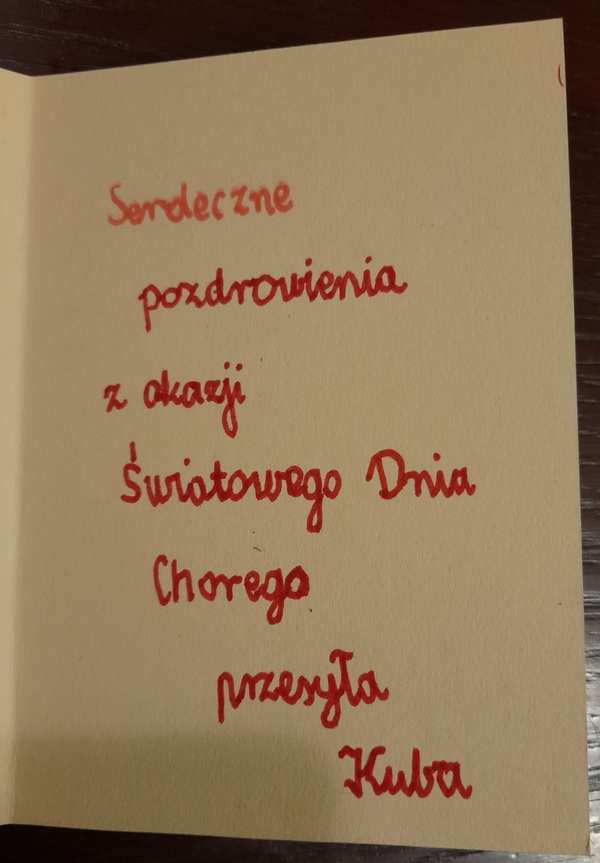 Serdeczne
pozdrowienia
z okazji
Światowego Dnia
Chorego
przesyła
Kuba